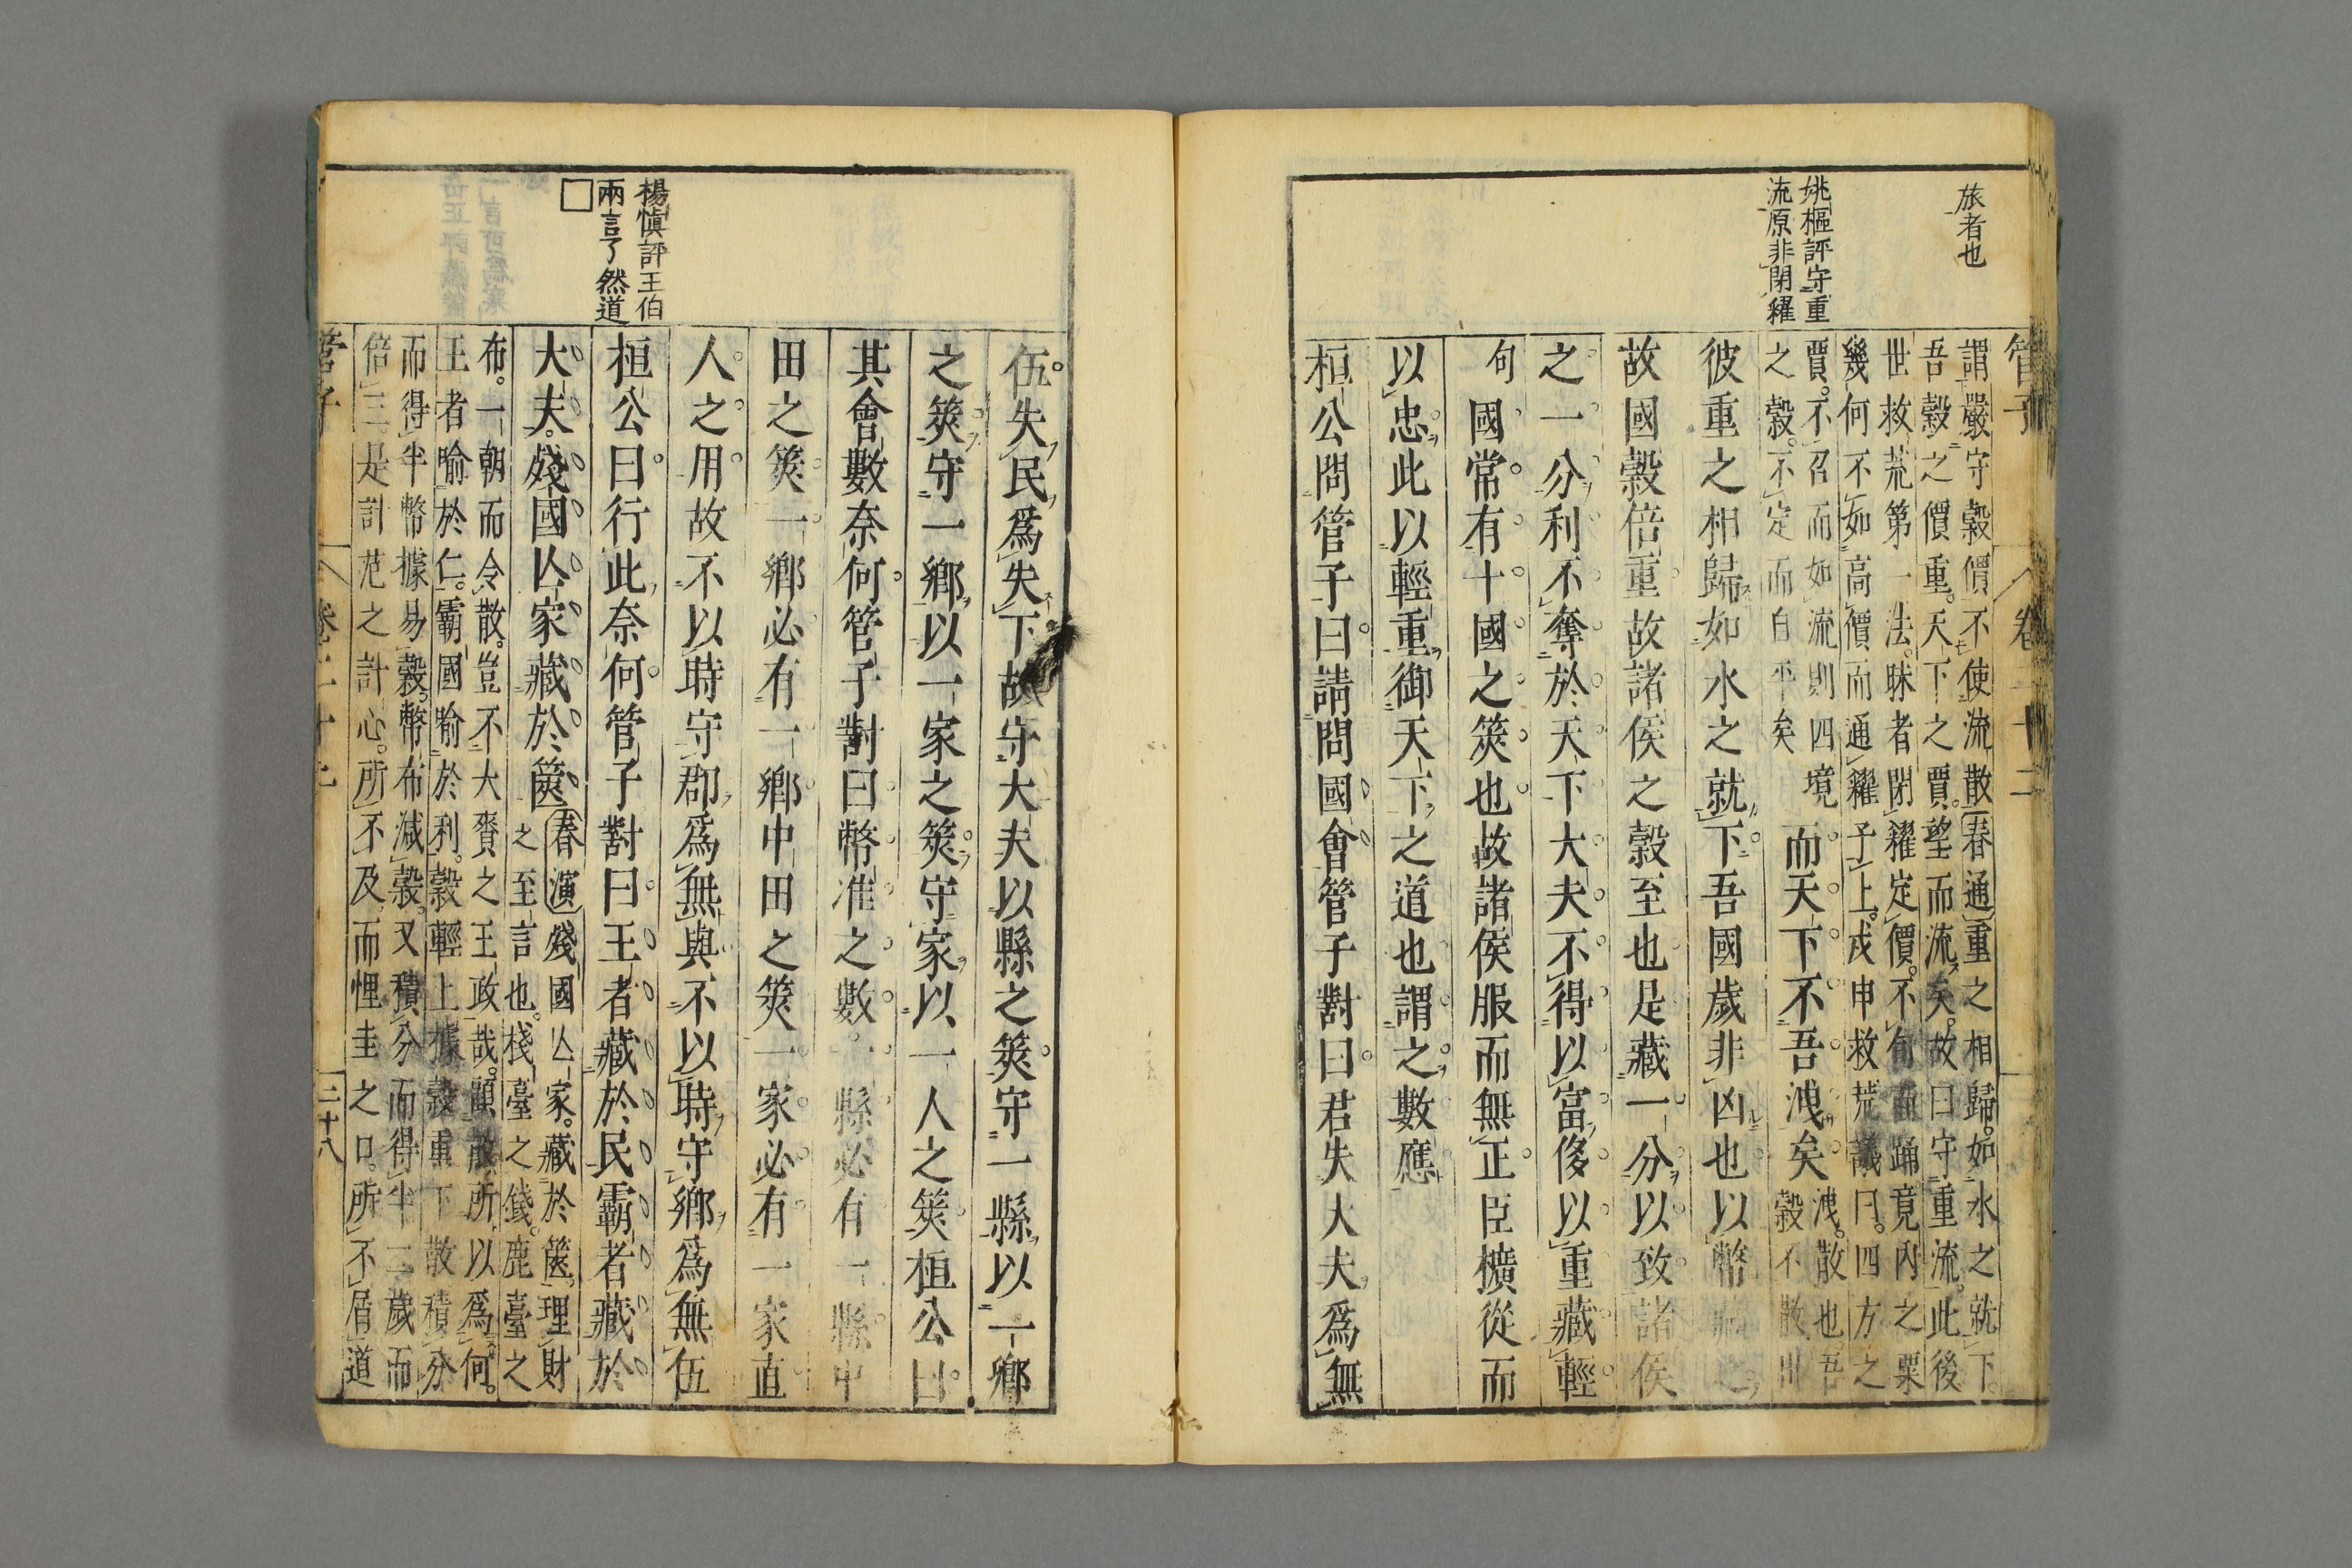 旅者也
姚樞評守重
流原非閉糴
管子 卷二十二
謂嚴守穀價不使流散春通重之相歸如水之就下
吾穀之價重天下之賈望而流矣故曰守重流此後
世救荒第一法昧者閉糴定價不旬而踊竟內之粟
幾何不如高價而通糴予上戍申救荒議曰四方之
賈不召而如流則四境
之穀不定而自平矣
而天下不吾洩矣
洩散也吾
穀不散出
彼重之相歸如水之就下吾國歲非凶也以幣藏之
故國穀倍重故諸侯之穀至也是藏一分以致諸侯
之一分利不奪於天下大夫不得以富侈以重藏輕
句國常有十國之筴也故諸侯服而無正臣擴從而
以忠此以輕重御天下之道也謂之數應
桓公問管子曰請問國會管子對曰君失大夫爲無
伍失民爲失下故守大夫以縣之筴守一縣以一鄉
之筴守一鄉以一家之筴守家以一人之筴桓公曰
其會數奈何管子對曰幣准之數一縣必有一縣中
田之筴一鄉必有一鄉中田之筴一家必有一家直
人之用故不以時守郡爲無與不以時守鄉爲無伍
楊愼評王伯
兩言了然道
桓公曰行此奈何管子對曰王者藏於民霸者藏於
大夫殘國亾家藏於篋
春演殘國亾家藏於篋理財
之至言也棧臺之錢鹿臺之
布一朝而令散豈不大賚之王政哉顧散所以爲何
王者喻於仁霸國喻於利穀輕上據穀重下散積分
而得半幣據易穀幣布減穀又積分而得半二歲而
倍三是計范之計心所不及而悝圭之口所不屑道
管子 卷二十二 二十八